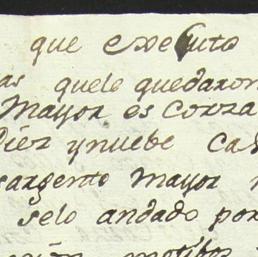 que executo
as quele quedaron
Mayor es corra
Diez ynuebe Ca
sargento Mayor
selo andado por
motibo